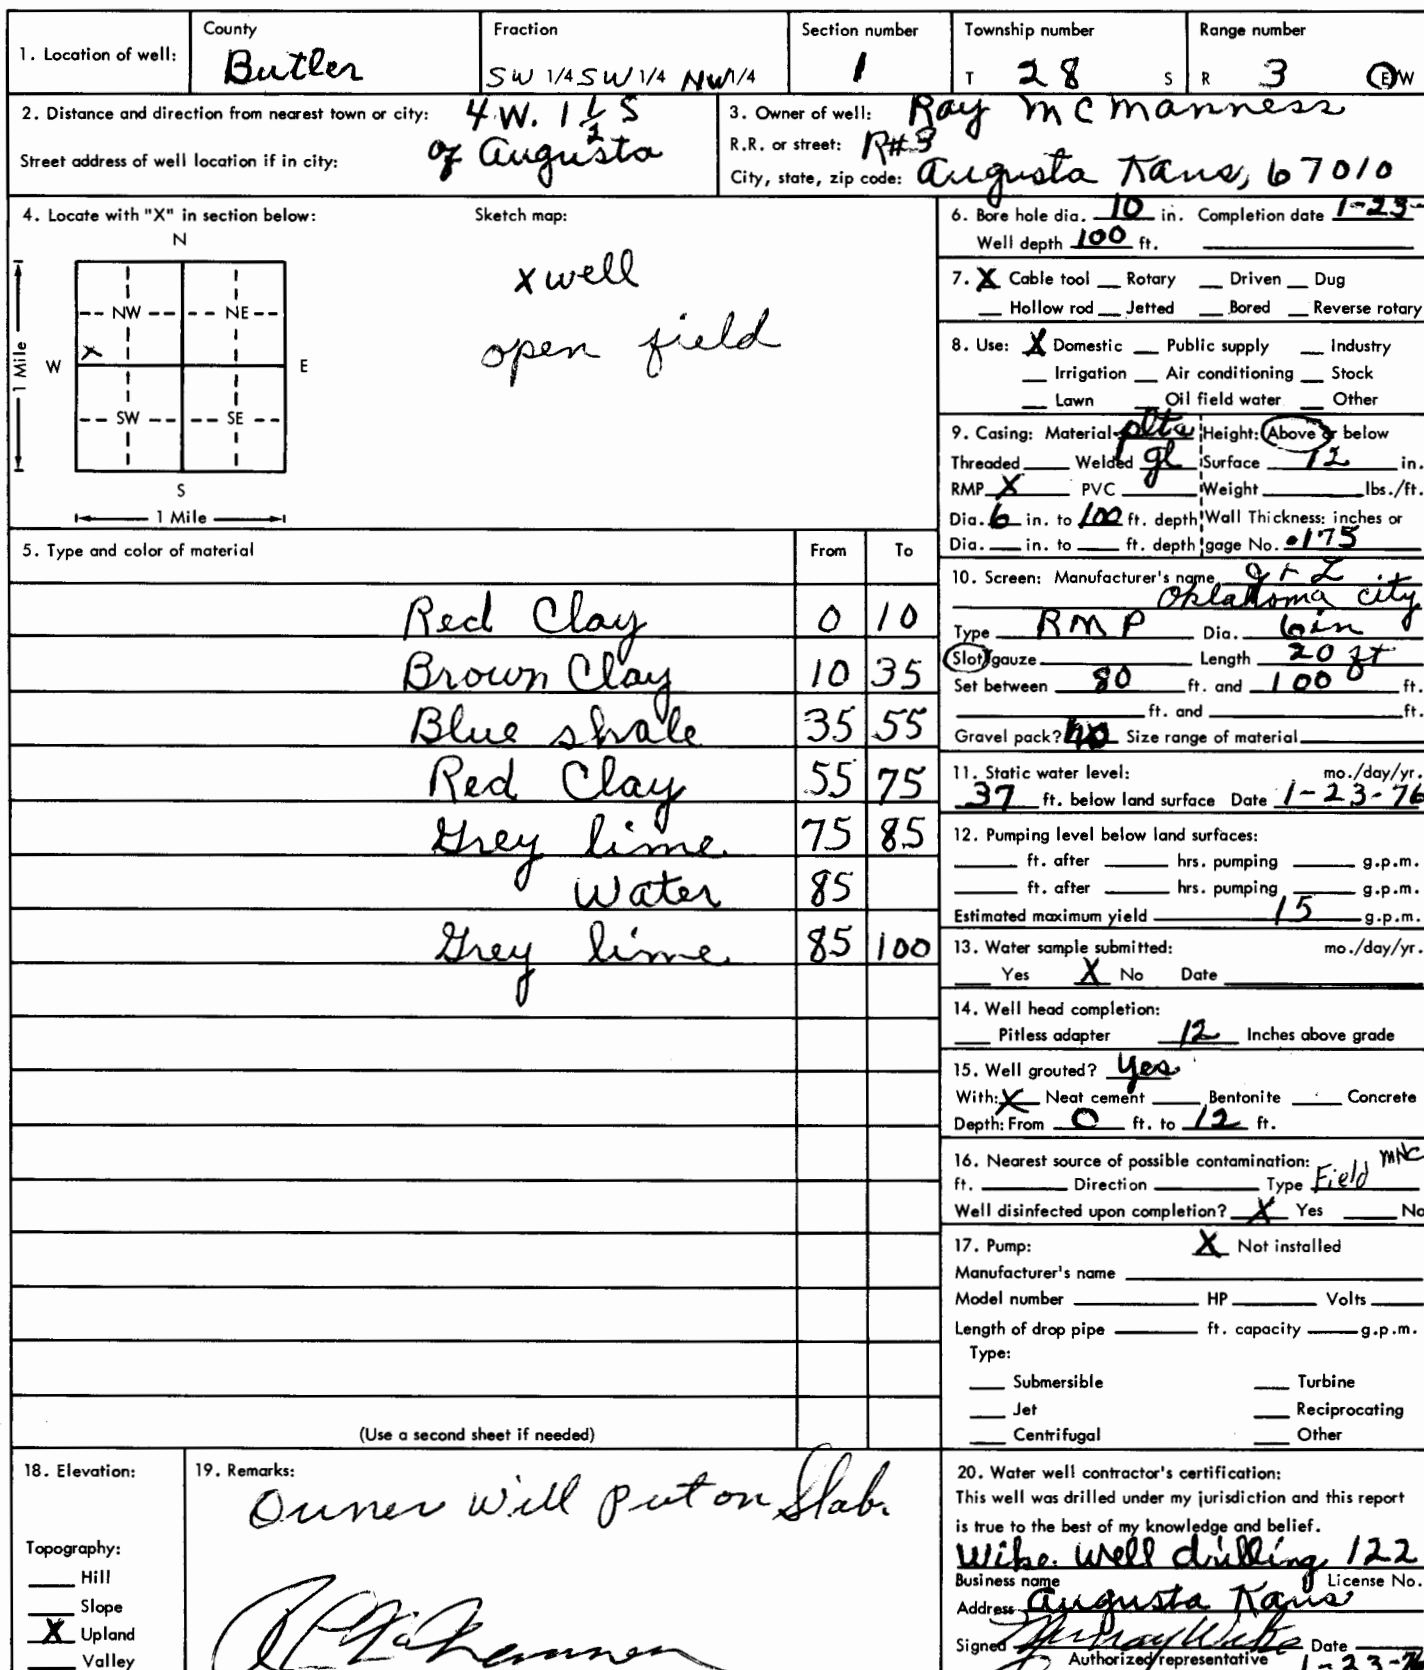 1. Location of well: County Butler Fraction SW 1/4 SW 1/4 NW 1/4 Section number 1 Township number T 28 S Range number R 3 E/W
2. Distance and direction from nearest town or city: 4 W. 1 1/2 S
of Augusta
Street address of well location if in city:
3. Owner of well: Ray McManness
R.R. or street: R#3
City, state, zip code: Augusta Kans, 67010
4. Locate with "X" in section below: Sketch map:
N
NW NE
W E
SW SE
S
1 Mile
1 Mile
X
x well
open field
6. Bore hole dia. 10 in. Completion date 1-23-
Well depth 100 ft.
7. X Cable tool Rotary Driven Dug
Hollow rod Jetted Bored Reverse rotary
8. Use: X Domestic Public supply Industry
Irrigation Air conditioning Stock
Lawn Oil field water Other
9. Casing: Material Height: Above or below
Threaded Welded gl Surface 12 in.
RMP X PVC Weight lbs./ft.
Dia. 6 in. to 100 ft. depth Wall Thickness: inches or
Dia. in. to ft. depth gage No. .175
10. Screen: Manufacturer's name
Oklahoma city
Type RMP Dia. 6in
Slot/gauze Length 20 ft
Set between 80 ft. and 100 ft.
ft. and ft.
Gravel pack? no Size range of material
11. Static water level: mo./day/yr.
37 ft. below land surface Date 1-23-76
12. Pumping level below land surfaces:
ft. after hrs. pumping g.p.m.
ft. after hrs. pumping g.p.m.
Estimated maximum yield 15 g.p.m.
13. Water sample submitted: mo./day/yr.
Yes X No Date
14. Well head completion:
Pitless adapter 12 Inches above grade
15. Well grouted? Yes
With: X Neat cement Bentonite Concrete
Depth: From 0 ft. to 12 ft.
16. Nearest source of possible contamination: MNC
ft. Direction Type Field
Well disinfected upon completion? X Yes No
17. Pump: X Not installed
Manufacturer's name
Model number HP Volts
Length of drop pipe ft. capacity g.p.m.
Type:
Submersible Turbine
Jet Reciprocating
Centrifugal Other
5. Type and color of material From To
Red Clay 0 10
Brown Clay 10 35
Blue shale 35 55
Red Clay 55 75
Grey lime 75 85
Water 85
Grey lime 85 100
(Use a second sheet if needed)
18. Elevation:
Topography:
Hill
Slope
X Upland
Valley
19. Remarks:
Owner Will put on Slab.
20. Water well contractor's certification:
This well was drilled under my jurisdiction and this report
is true to the best of my knowledge and belief.
Wike Well drilling 122
Business name License No.
Address Augusta Kans
Signed Murray Wike Date
Authorized representative 1-23-76